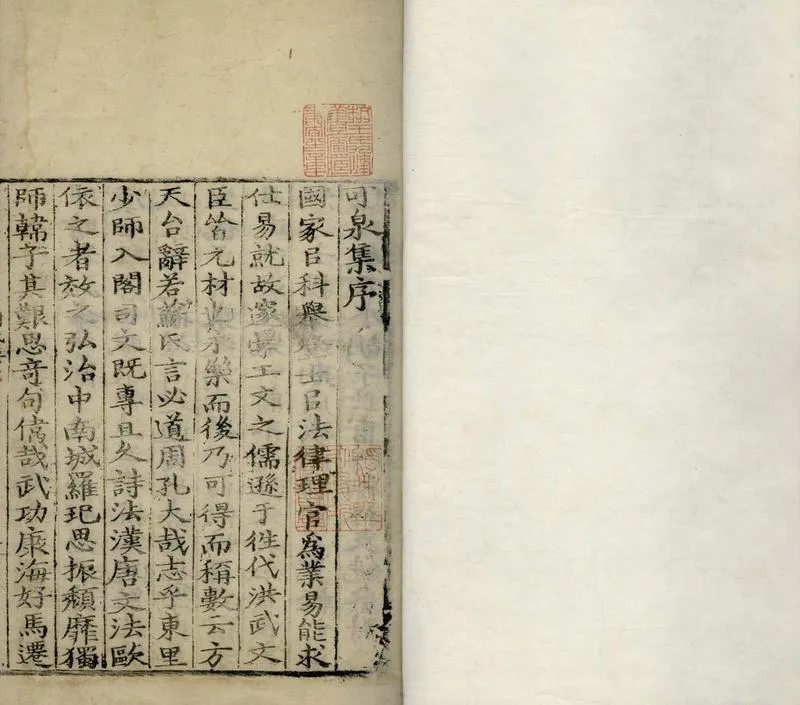 可泉集序
國家㠯科舉登士㠯法律理官為業易能求
仕易就故邃學工文之儒遜于往代洪武文
臣皆元材也永樂而後乃可得而稱數云方
天台辭若蘇氏言必道周孔大哉志乎東里
少師入閣司文既專且久詩法漢唐文法歐
依之者效之弘治中南城羅玘思振頹靡獨
師韓子其艱思奇句偉哉武功康海好馬遷